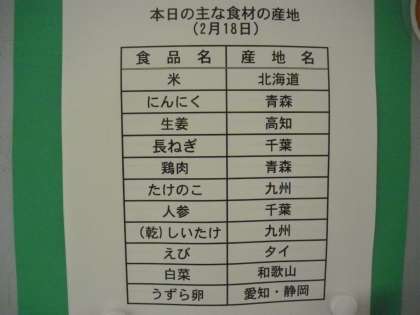 本日の主な食材の産地
(2月18日)
食品名 産地名
米 北海道
にんにく 青森
生姜 高知
長ねぎ 千葉
鶏肉 青森
たけのこ 九州
人参 千葉
(乾)しいたけ 九州
えび タイ
白菜 和歌山
うずら卵 愛知・静岡